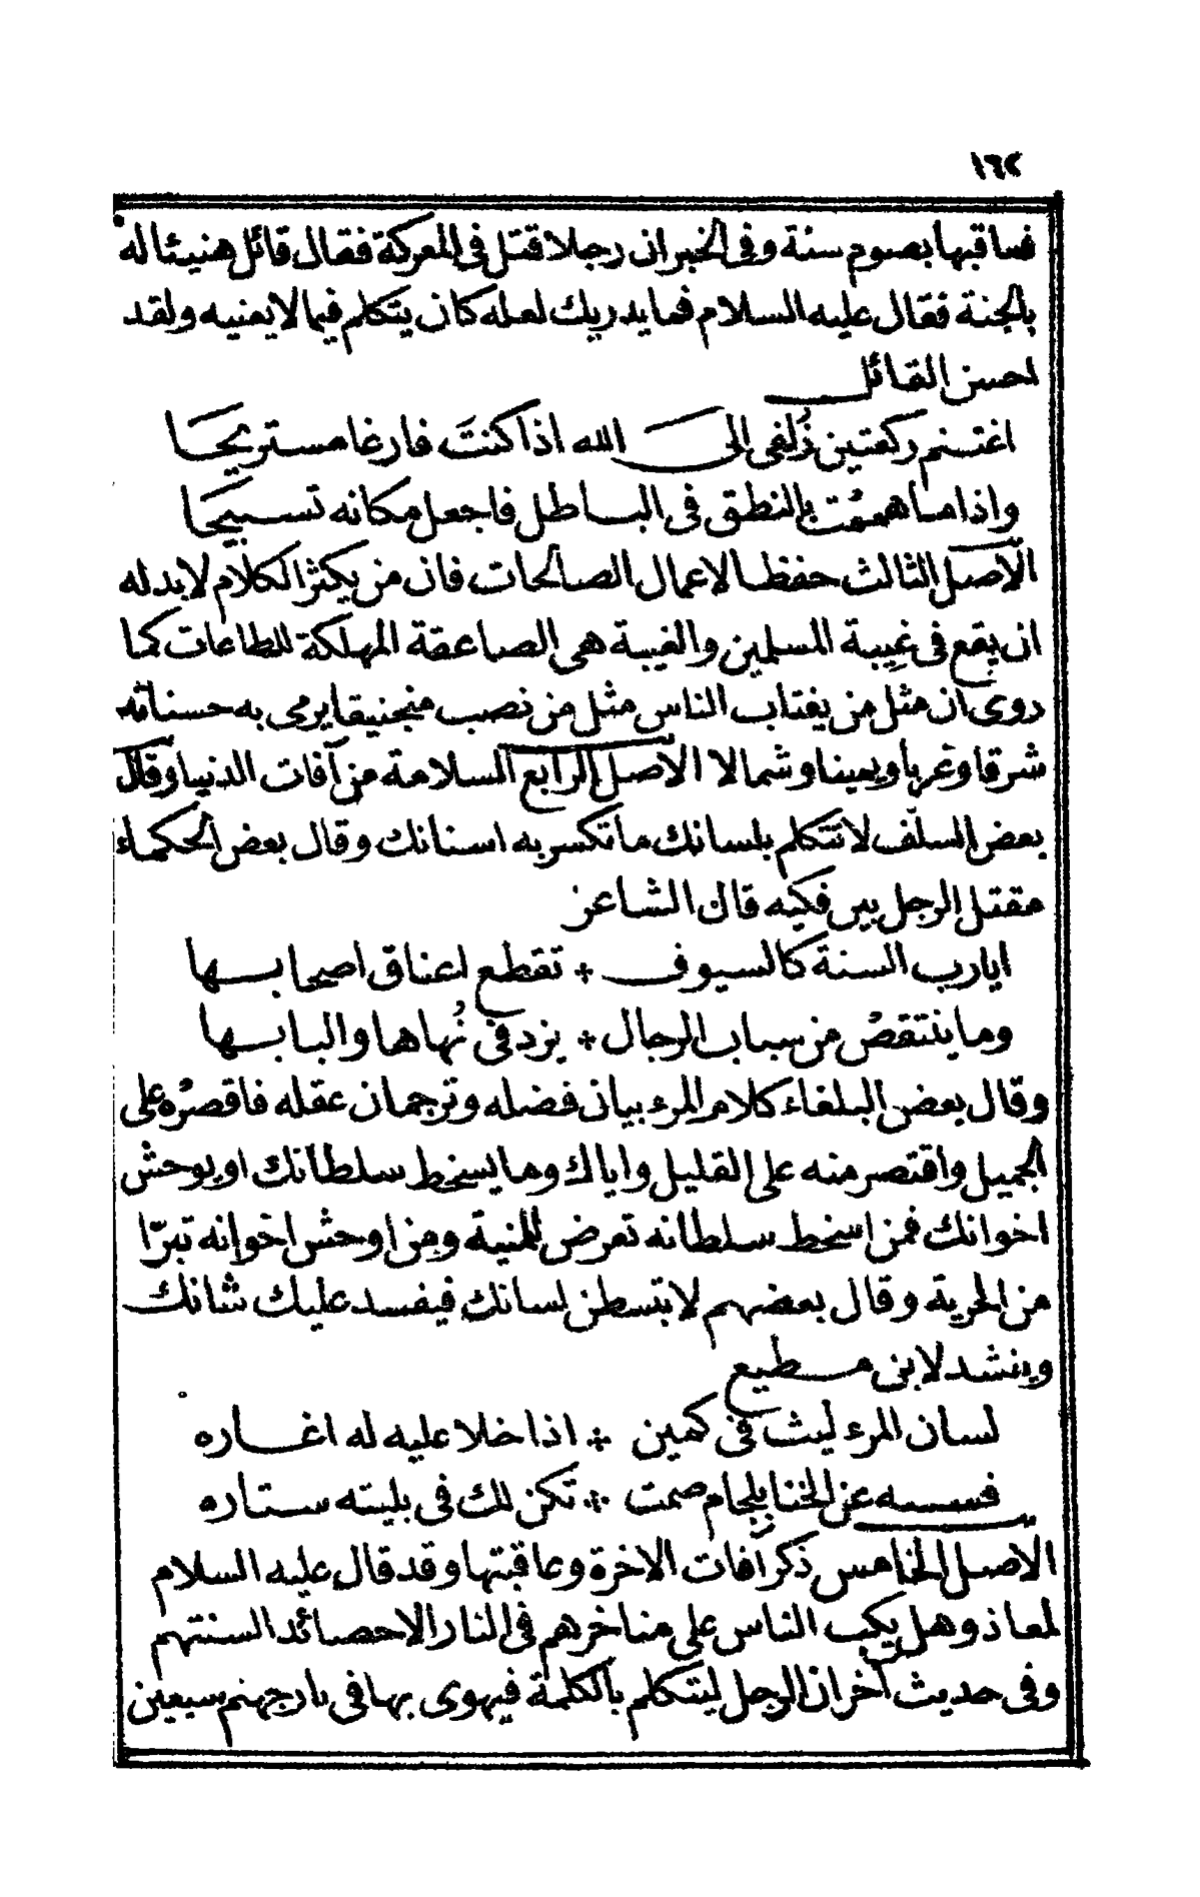 ١٦٢
فعاقبها بصوم سنة وفى الخبر ان رجلا قتل فى المعركة فقال قائل هنيئا له
بالجنة فقال عليه السلام فما يدريك لعله كان يتكلم فيما لا يعنيه ولقد
احسن القائل
اغتنم ركعتين زُلفى الى الله اذا كنتَ فارغا مستريحا
واذا ما هممْت بالنطق فى الباطل فاجعل مكانه تسبيحا
الاصل الثالث حفظ الاعمال الصالحات فان من يكثر الكلام لا بد له
ان يقع فى غيبة المسلمين والغيبة هى الصاعقة المهلكة للطاعات كما
روى ان مثل من يغتاب الناس مثل من نصب منجنيقا يرمى به حسناته
شرقا وغربا ويمينا وشمالا الاصل الرابع السلامة من آفات الدنيا وقال
بعض السلف لا تتكلم بلسانك ما تكسر به اسنانك وقال بعض الحكماء
مقتل الرجل بين فكيه قال الشاعر
ايا رب السنة كالسيوف ٭ تقطع اعناق اصحابها
وما ينتقصْ من سباب الرجال ٭ يزد فى نُهاها والبابها
وقال بعض البلغاء كلام المرء بيان فضله وترجمان عقله فاقصرْه على
الجميل واقتصر منه على القليل واياك وما يسخط سلطانك او يوحش
اخوانك فمن اسخط سلطانه تعرض للمنية ومن اوحش اخوانه تبرّا
من الحرية وقال بعضهم لا تبسطن لسانك فيفسد عليك شانك
وينشد لابن مطيع
لسان المرء ليث فى كمين ٭ اذا خلا عليه له اغاره
فسسه عن الخنا بلجام صمت ٭ تكن لك فى بليته ستاره
الاصل الخامس ذكر آفات الاخرة وعاقبتها وقد قال عليه السلام
لمعاذ وهل يكب الناس على مناخرهم فى النار الا حصائد السنتهم
وفى حديث آخر ان الرجل ليتكلم بالكلمة فيهوى بها فى نار جهنم سبعين